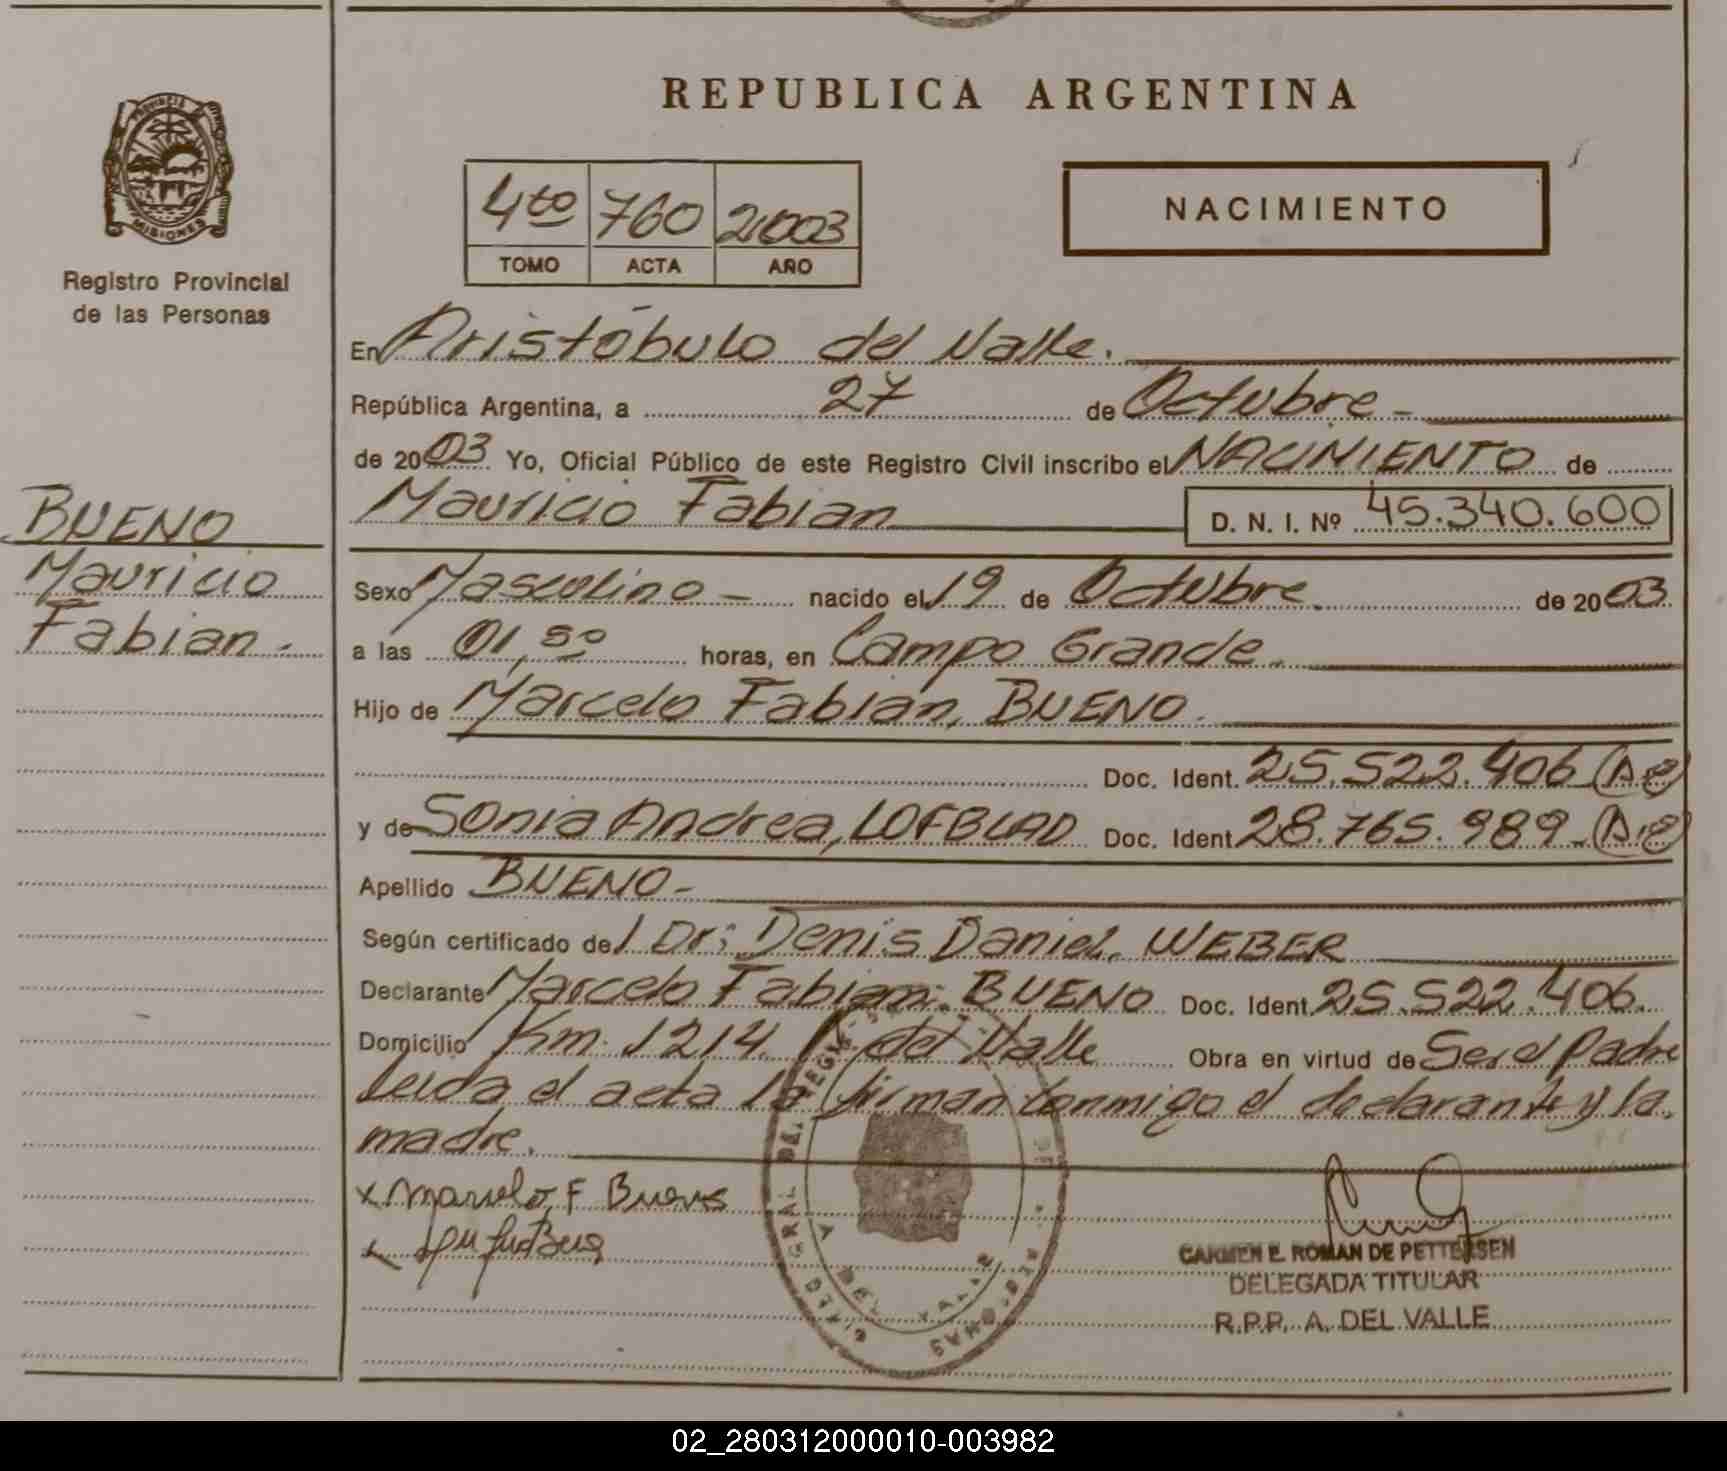 REPUBLICA ARGENTINA
PROVINCIA
MISIONES
Registro Provincial
de las Personas
4to 760 2003
TOMO ACTA AÑO
NACIMIENTO
En Aristóbulo del Valle.
República Argentina, a 27 de Octubre
de 2003 Yo, Oficial Público de este Registro Civil inscribo el NACIMIENTO de
Mauricio Fabian D. N. I. Nº 45.340.600
BUENO
Mauricio
Fabian.-
Sexo Masculino - nacido el 19 de Octubre. de 2003
a las 01,50 horas, en Campo Grande.
Hijo de Marcelo Fabian, BUENO.
Doc. Ident. 25.522.406
y de Sonia Andrea, LOFBLAD Doc. Ident. 28.765.989-
Apellido BUENO-
Según certificado del Dr: Denis Daniel. WEBER
Declarante Marcelo Fabian. BUENO Doc. Ident. 25.522.406.
Domicilio Km. 1214. A. del Valle Obra en virtud de Ser el Padre
Leida el acta la firman conmigo el declarante y la
madre.
x Marcelo F Bueno
CARMEN E. ROMAN DE PETTERSEN
DELEGADA TITULAR
R.P.P. A. DEL VALLE
02_280312000010-003982